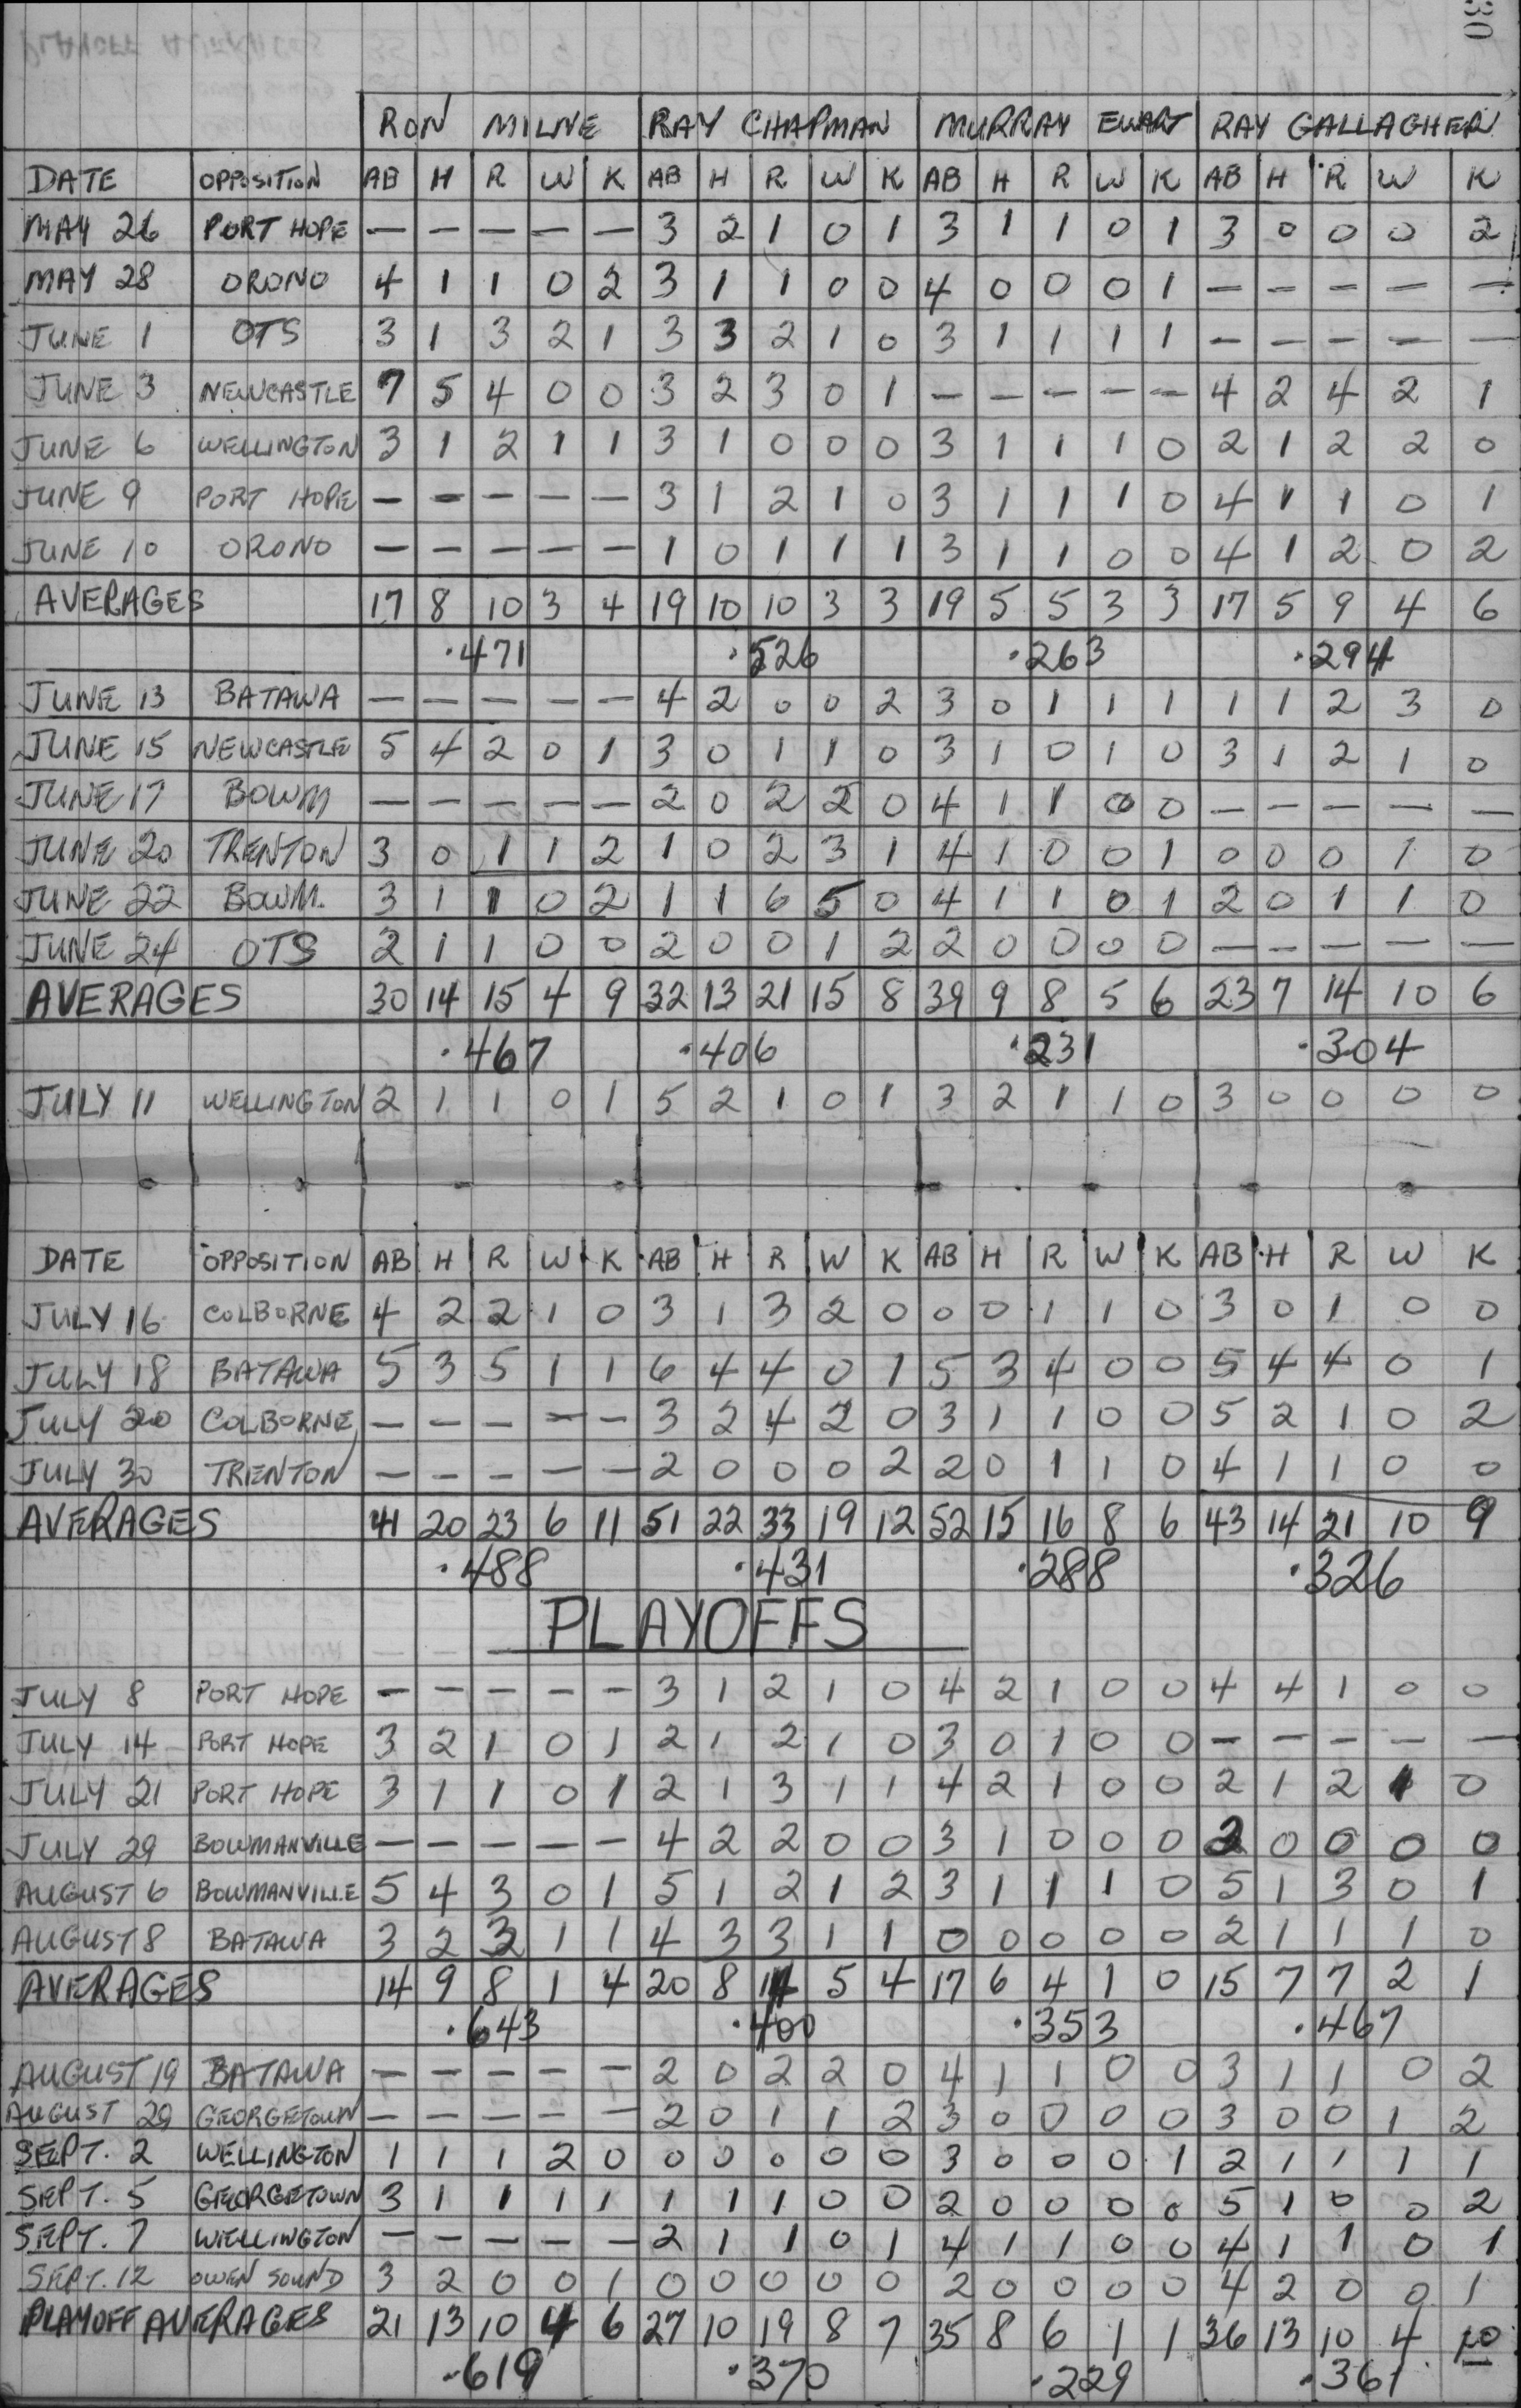 30
RON MILNE RAY CHAPMAN MURRAY EWART RAY GALLAGHER
DATE OPPOSITION AB H R W K AB H R W K AB H R W K AB H R W K
MAY 26 PORT HOPE — — — — — 3 2 1 0 1 3 1 1 0 1 3 0 0 0 2
MAY 28 ORONO 4 1 1 0 2 3 1 1 0 0 4 0 0 0 1 — — — — —
JUNE 1 OTS 3 1 3 2 1 3 3 2 1 0 3 1 1 1 1 — — — — —
JUNE 3 NEWCASTLE 7 5 4 0 0 3 2 3 0 1 — — — — — 4 2 4 2 1
JUNE 6 WELLINGTON 3 1 2 1 1 3 1 0 0 0 3 1 1 1 0 2 1 2 2 0
JUNE 9 PORT HOPE — — — — — 3 1 2 1 0 3 1 1 1 0 4 1 1 0 1
JUNE 10 ORONO — — — — — 1 0 1 1 1 3 1 1 0 0 4 1 2 0 2
AVERAGES 17 8 10 3 4 19 10 10 3 3 19 5 5 3 3 17 5 9 4 6
.471 .526 .263 .294
JUNE 13 BATAWA — — — — — 4 2 0 0 2 3 0 1 1 1 1 1 2 3 0
JUNE 15 NEWCASTLE 5 4 2 0 1 3 0 1 1 0 3 1 0 1 0 3 1 2 1 0
JUNE 17 BOWM — — — — — 2 0 2 2 0 4 1 1 0 0 — — — — —
JUNE 20 TRENTON 3 0 1 1 2 1 0 2 3 1 4 1 0 0 1 0 0 0 1 0
JUNE 22 BOWM. 3 1 1 0 2 1 1 6 5 0 4 1 1 0 1 2 0 1 1 0
JUNE 24 OTS 2 1 1 0 0 2 0 0 1 2 2 0 0 0 0 — — — — —
AVERAGES 30 14 15 4 9 32 13 21 15 8 39 9 8 5 6 23 7 14 10 6
.467 .406 .231 .304
JULY 11 WELLINGTON 2 1 1 0 1 5 2 1 0 1 3 2 1 1 0 3 0 0 0 0
DATE OPPOSITION AB H R W K AB H R W K AB H R W K AB H R W K
JULY 16 COLBORNE 4 2 2 1 0 3 1 3 2 0 0 0 1 1 0 3 0 1 0 0
JULY 18 BATAWA 5 3 5 1 1 6 4 4 0 1 5 3 4 0 0 5 4 4 0 1
JULY 20 COLBORNE — — — — — 3 2 4 2 0 3 1 1 0 0 5 2 1 0 2
JULY 30 TRENTON — — — — — 2 0 0 0 2 2 0 1 1 0 4 1 1 0 0
AVERAGES 41 20 23 6 11 51 22 33 19 12 52 15 16 8 6 43 14 21 10 9
.488 .431 .288 .326
PLAYOFFS
JULY 8 PORT HOPE — — — — — 3 1 2 1 0 4 2 1 0 0 4 4 1 0 0
JULY 14 PORT HOPE 3 2 1 0 1 2 1 2 1 0 3 0 1 0 0 — — — — —
JULY 21 PORT HOPE 3 1 1 0 1 2 1 3 1 1 4 2 1 0 0 2 1 2 1 0
JULY 29 BOWMANVILLE — — — — — 4 2 2 0 0 3 1 0 0 0 2 0 0 0 0
AUGUST 6 BOWMANVILLE 5 4 3 0 1 5 1 2 1 2 3 1 1 1 0 5 1 3 0 1
AUGUST 8 BATAWA 3 2 3 1 1 4 3 3 1 1 0 0 0 0 0 2 1 1 1 0
AVERAGES 14 9 8 1 4 20 8 14 5 4 17 6 4 1 0 15 7 7 2 1
.643 .400 .353 .467
AUGUST 19 BATAWA — — — — — 2 0 2 2 0 4 1 1 0 0 3 1 1 0 2
AUGUST 29 GEORGETOWN — — — — — 2 0 1 1 2 3 0 0 0 0 3 0 0 1 2
SEPT. 2 WELLINGTON 1 1 1 2 0 0 0 0 0 0 3 0 0 0 1 2 1 1 1 1
SEPT. 5 GEORGETOWN 3 1 1 1 1 1 1 1 0 0 2 0 0 0 0 5 1 0 0 2
SEPT. 7 WELLINGTON — — — — — 2 1 1 0 1 4 1 1 0 0 4 1 1 0 1
SEPT. 12 OWEN SOUND 3 2 0 0 1 0 0 0 0 0 2 0 0 0 0 4 2 0 0 1
PLAYOFF AVERAGES 21 13 10 4 6 27 10 19 8 7 35 8 6 1 1 36 13 10 4 10
.619 .370 .229 .361